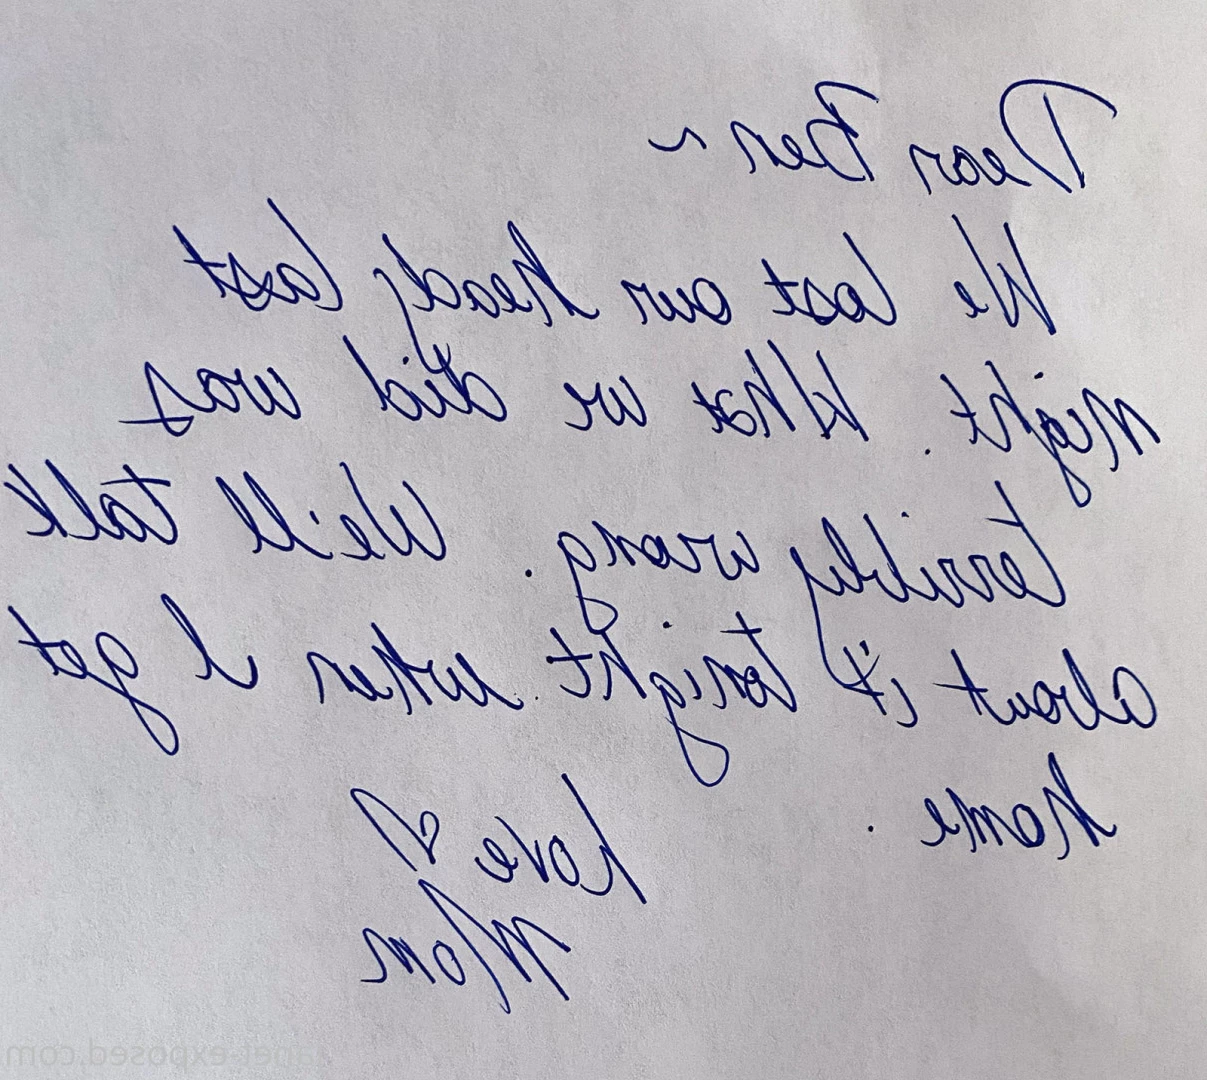 Dear Ben ~
We lost our heads last
night. What we did was
terribly wrong. We'll talk
about it tonight when I get
home.
Love ♡
Mom